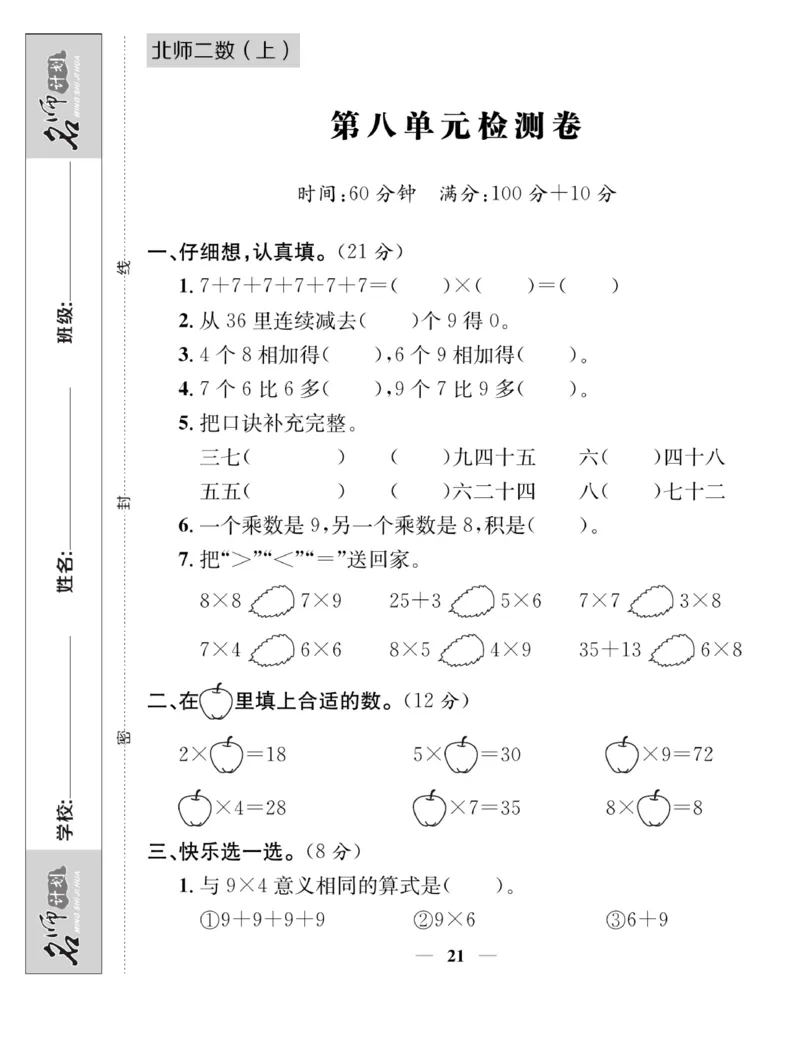 北师二数(上)
第八单元检测卷
时间:60分钟 满分:100分+10分
一、仔细想,认真填。(21分)
1. 7+7+7+7+7+7=( )×( )=( )
2. 从36里连续减去( )个9得0。
3. 4个8相加得( ),6个9相加得( )。
4. 7个6比6多( ),9个7比9多( )。
5. 把口诀补充完整。
三七( ) ( )九四十五 六( )四十八
五五( ) ( )六二十四 八( )七十二
6. 一个乘数是9,另一个乘数是8,积是( )。
7. 把“>”“<”“=”送回家。
8×8 7×9 25+3 5×6 7×7 3×8
7×4 6×6 8×5 4×9 35+13 6×8
二、在 里填上合适的数。(12分)
2× =18 5× =30 ×9=72
×4=28 ×7=35 8× =8
三、快乐选一选。(8分)
1. 与9×4意义相同的算式是( )。
①9+9+9+9 ②9×6 ③6+9
— 21 —
名师计划
MING SHI JI HUA
班级:
姓名:
学校:
名师计划
MING SHI JI HUA
线
封
密